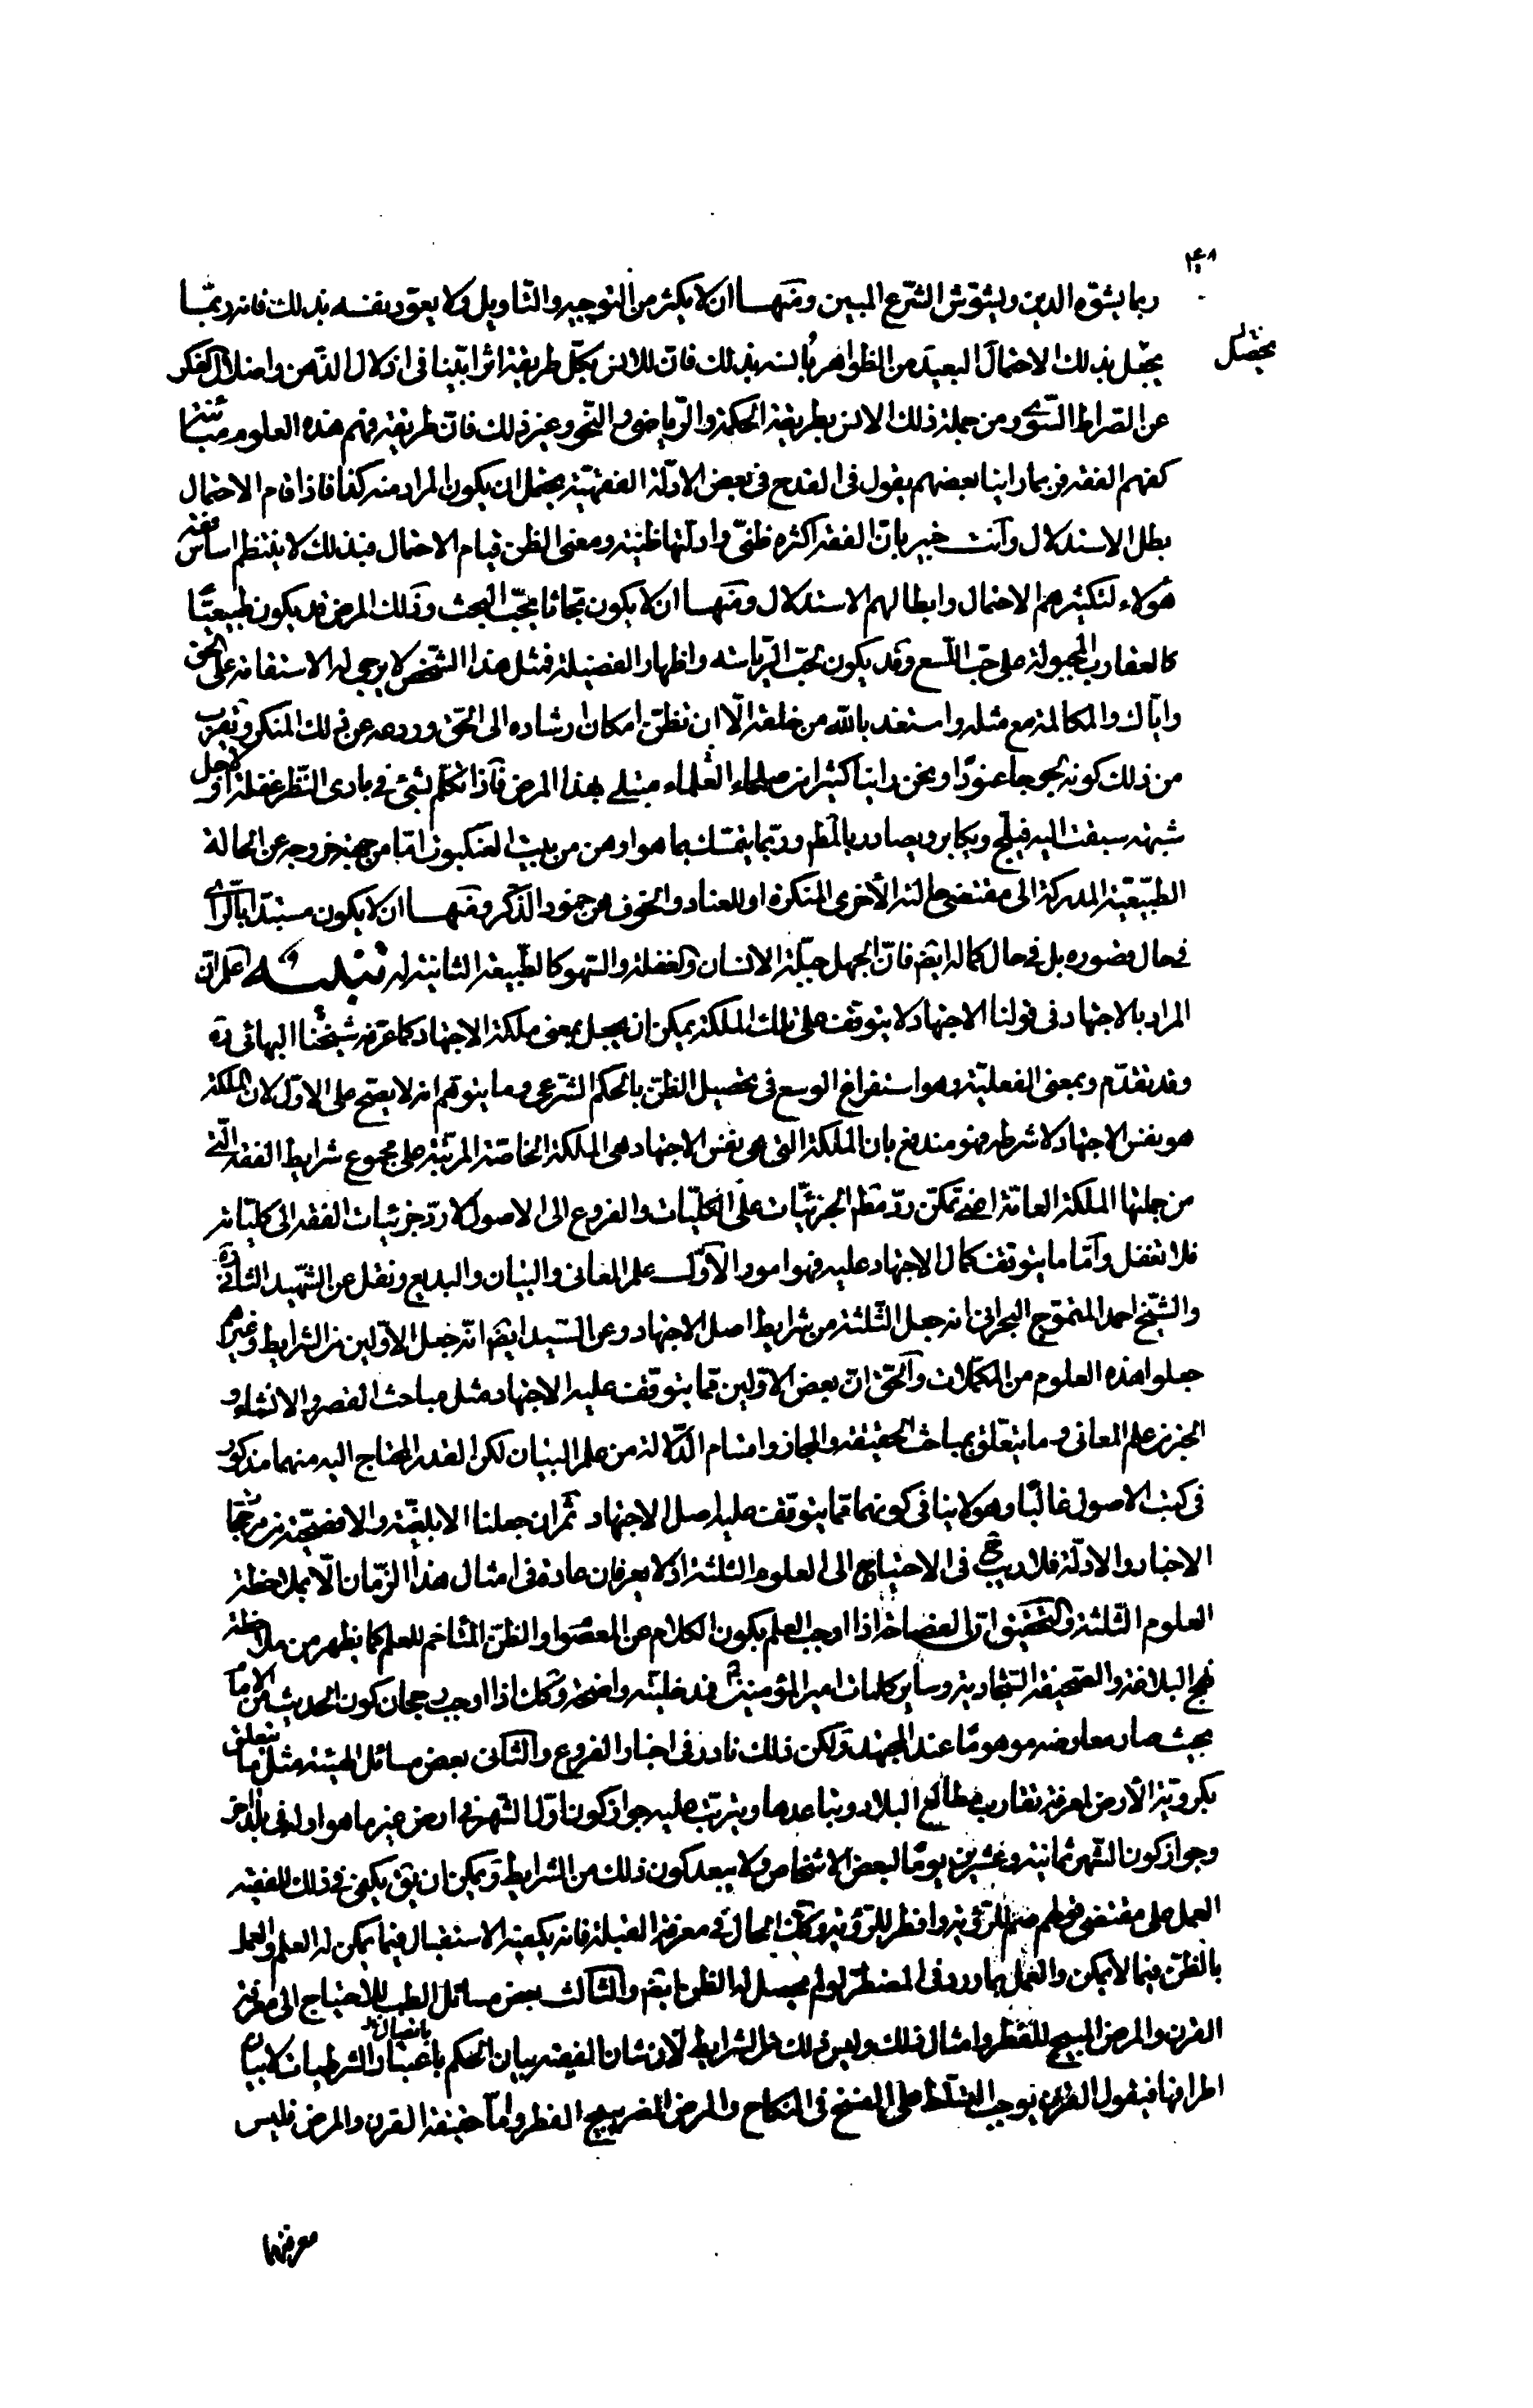 ۴۰۸
ربما يشوّه الدين ويشوّش الشّرع المبين ومنهـا ان لا يكثر من التوجيه والتّاويل ولا يعوّد نفسه بذلك فانه ربّمـا
يحصل
يجعل بذلك الاحتمال البعيد من الظواهر بانسه بذلك فان للانس بكلّ طريقة اثرا بيّنا في اذلال الذّهن واضلال الفكر
عن الصّراط السّوى ومن جملة ذلك الانس بطريقة الحكمة والرّياضى والنّحو وغير ذلك فانّ طريقة فهم هذه العلوم مباينة
لفهم الفقه فربما راينا بعضهم يقول في القدح في بعض الادلّة الفقهيّة يحتمل ان يكون المراد منه كذا فاذا قام الاحتمال
بطل الاستدلال وانت خبير بانّ الفقه اكثره ظنّى وادلّتها ظنيّة ومعنى الظن قيام الاحتمال فبذلك لا ينتظم اساس فقه
هؤلاء لتكثيرهم الاحتمال وابطالهم الاستدلال ومنهـا ان لا يكون بحّاثا يحبّ البحث وذلك المرض قد يكون طبيعيّا
كالعقارب المجبولة على حبّ اللّسع وقد يكون لحبّ الرّياسة واظهار الفضيلة فمثل هذا الشّخص لا يرجى له الاستقامة على الحق
وايّاك والمكالمة مع مثله واستعذ بالله من خلقه الّا ان تظنّ امكان ارشاده الى الحّق وردعه عن ذلك المنكر ويقرب
من ذلك كونه لجوجا عنودًا ونحن راينا كثيرا من صلحاء العلماء مبتلى بهذا المرض فاذا تكلّم بشئ في بادى النّظر غفلة او لاجل
شبهة سبقت اليه فيلجّ ويكابر ويصادر بالمطم وربّما يتمسّك بما هو اوهن من بيت العنكبوت امّا من جهة خروجه عن الحالة
الطّبيعيّة المدركة الى مقتضى حالته الأخرى المنكرة او للعناد والخوف من جمود الذّكر ومنهـا ان لا يكون مستبدّا بالرّاى
في حال قصوره بل في حال كماله ايضم فانّ الجهل جبلّة الانسان والغفلة والسّهو كالطّبيعة الثانية له تنبيـه اعلم انّ
المراد بالاجتهاد في قولنا الاجتهاد لا يتوقف على تلك الملكة يمكن ان يجعل بمعنى ملكة الاجتهاد كما عرّفه شيخنا البهائى ره
وقد تقدّم وبمعنى الفعليّة وهو استفراغ الوسع في تحصيل الظّن بالحكم الشّرعى وما يتوهّم انه لا يصّح على الاوّل لان الملكة
هو نفس الاجتهاد لا شرطه فهو مندفع بان الملكة التى هى نفس الاجتهاد هى الملكة الخاصّة المرتّبة على مجموع شرايط الفقه الّتى
من جملتها الملكة العامّة اعنى تمكّن ردّ مطلم الجزئيّات على الكليّات والفروع الى الاصول لا ردّ جزئيات الفقه الى كليّاته
فلا تغفل وامّا ما يتوقف كمال الاجتهاد عليه فهو امور الاوّل علم المعانى والبيان والبديع ونقل عن الشّهيد الثانى ره
والشّيخ احمد المتموّج البحرانى انه جعل الثّلثة من شرايط اصل الاجتهاد وعن السّيد ايضم انّه جعل الاوّلين من الشرايط وغيرهم
جعلوا هذه العلوم من المكمّلات والحقّ انّ بعض الاوّلين ممّا يتوقّف عليه الاجتهاد مثل مباحث القصر والانشاء و
الخبر من علم المعانى وما يتعلّق بمباحث الحقيقة والمجاز واقسام الدّلالة من علم البيان لكن القدر المحتاج اليه منهما مذكور
في كتب الاصول غالبًا وهو لا ينافى كونهما ممّا يتوقّف عليه اصل الاجتهاد ثمّ ان جعلنا الابلغيّة والافصحيّة من مرجّحات
الاخبار والادلّة فلا ريب ح في الاحتياج الى العلوم الثلثة اذ لا يعرفان عادة في امثال هذا الزّمان الّا بملاحظة
العلوم الثّلثة والتحقيق انّ الفصاحة اذا اوجب العلم بكون الكلام عن المعصوم او الظنّ المتاخم للعلم كما يظهر من ملاحظة
نهج البلاغة والصّحيفة السّجّادية وساير كلمات امير المؤمنين ع فدخليّته واضحة وكك اذا اوجب رجحان كون الحديث من الامام
بحيث صار معارضه موهومًا عند المجتهد ولكن ذلك نادر في اخبار الفروع والثانى بعض مسائل الهيئة مثل ما يتعلق
بكرويّة الأرض لمعرفة تقارب مطالع البلاد وتباعدها ويترتّب عليه جواز كون اوّل الشهر في ارض غير ما هو اوله في بلد اخر
وجواز كون الشّهر ثمانية وعشرين يومًا لبعض الاشخاص ولا يبعد كون ذلك من الشرايط ويمكن ان يق يكفى في ذلك للفقيه
العمل على مقتضى قولهم صم للرّؤية وافطر للرّؤية وكك الحال في معرفة القبلة فانه يكفيه الاستقبال فيما يمكن له العلم والعمل
بالظّن فيما لا يمكن والعمل بما ورد في المضطرّ لو لم يحصل له الظن ايضم والثالث بعض مسائل الطب للاحتياج الى معرفة
القرن والمرض المبيح للفطر وامثال ذلك وليس ذلك من الشرايط لانّ شان الفقيه بيان الحكم باعتبار الشرطيات لا بيان
اطرافها فيقول القرن يوجب التّسلّط على الفسخ في النكاح والمرض المضر يبيح الفطر وامّا حقيقة القرن والمرض فليس
معرفتها